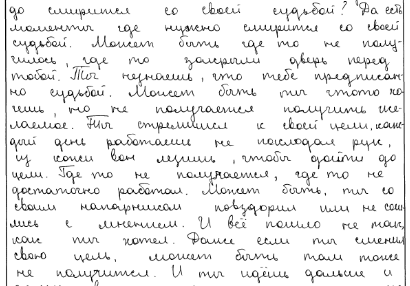 до смирится со своей судьбой? Да есть
моменты где нужно смирится со своей
судьбой. Может быть где то не полу-
чилось, где то закрыли дверь перед
тобой. Ты незнаешь, что тебе предписан-
но судьбой. Может быть ты чтото хо-
чешь, но не получается получить же-
лаемое. Ты стремишся к своей цели, каж-
дый день работаеш не покладая рук,
из кожи вон лезишь, чтобы дойти до
цели. Где то не получается, где то не
достаточно работал. Может быть, ты со
своим напарником повздорил или не сош-
лись с мнением. И всё пошло не так,
как ты хотел. Даже если ты сменил
свою цель, может быть там тоже
не получится. И ты идёшь дальше и